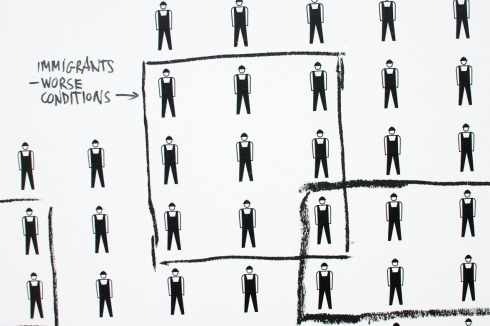 IMMIGRANTS
-WORSE
CONDITIONS →